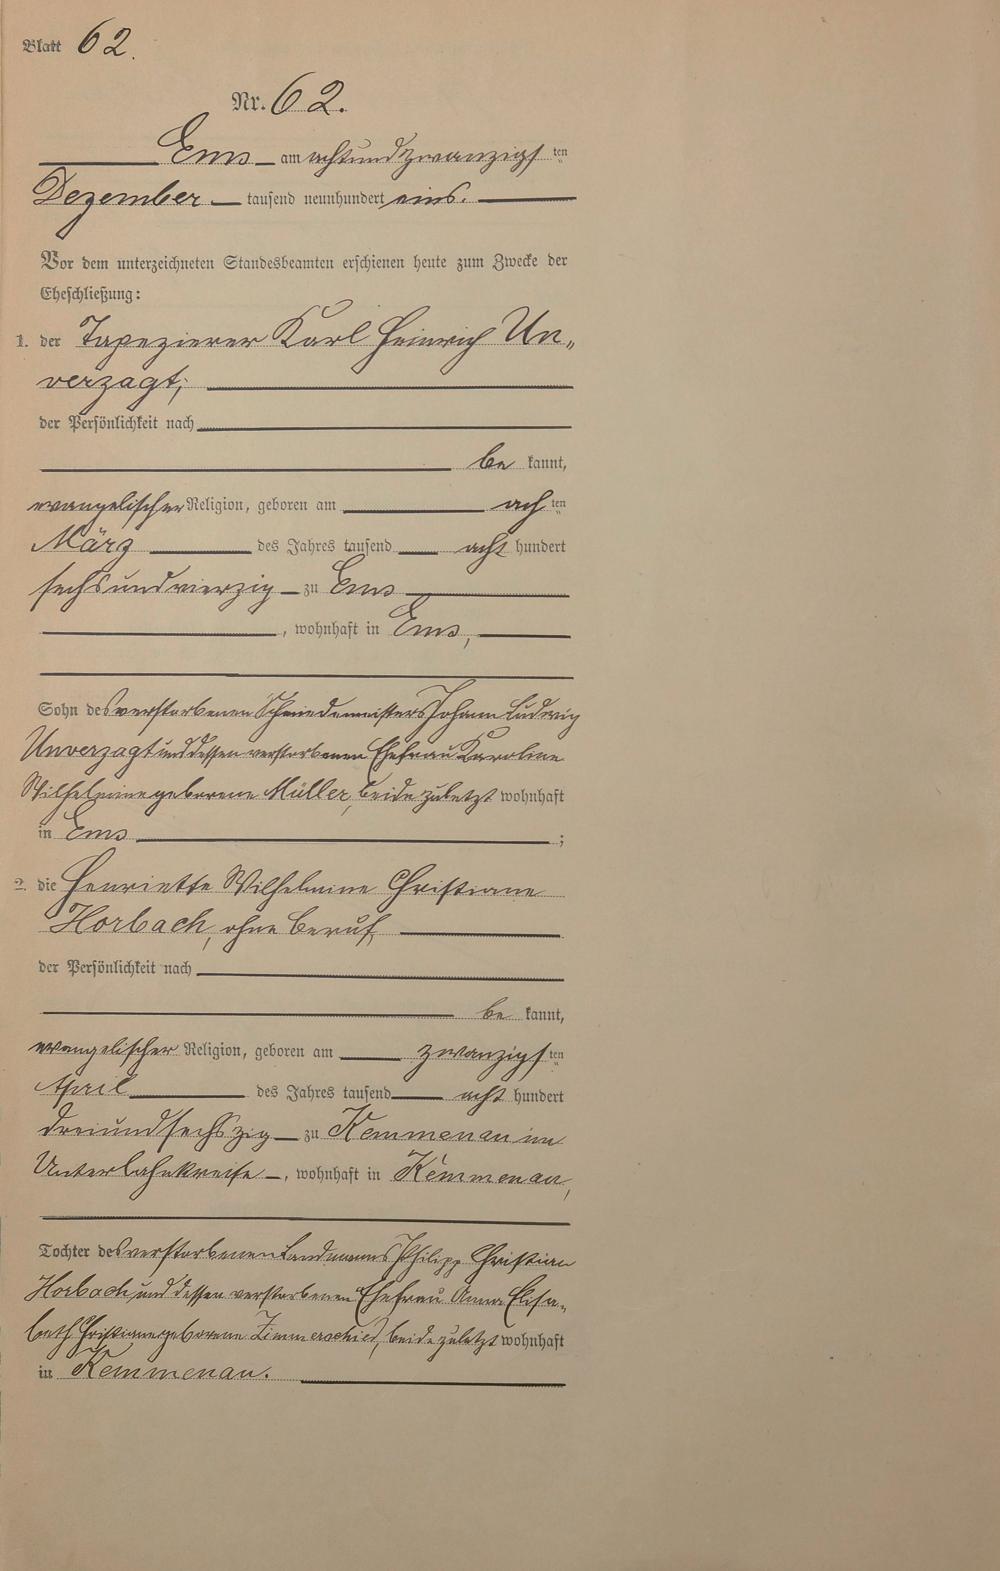 Blatt 62.
Nr. 62.
Ems am achtundzwanzigsten
Dezember tausend neunhundert eins.
Vor dem unterzeichneten Standesbeamten erschienen heute zum Zwecke der
Eheschließung:
1. der Tapezierer Karl Heinrich Un„
verzagt;
der Persönlichkeit nach
be kannt,
evangelischer Religion, geboren am achten
März des Jahres tausend acht hundert
sechsundvierzig zu Ems
, wohnhaft in Ems,
Sohn des verstorbenen Schmiedemeisters Johann Ludwig
Unverzagt und dessen verstorbenen Ehefrau Karoline
Wilhelmine geborene Müller, beide zuletzt wohnhaft
in Ems ;
2. die Henriette Wilhelmine Christiane
Horbach, ohne Beruf,
der Persönlichkeit nach
be kannt,
evangelischer Religion, geboren am zwanzigsten
April des Jahres tausend acht hundert
dreiundsechszig zu Kemmenau im
Unterlahnkreise , wohnhaft in Kemmenau,
Tochter des verstorbenen Landmanns Philipp Christian
Horbach und dessen verstorbenen Ehefrau Anna Elisa„
beth Christiane geborene Zimmerschied, beide zuletzt wohnhaft
in Kemmenau.